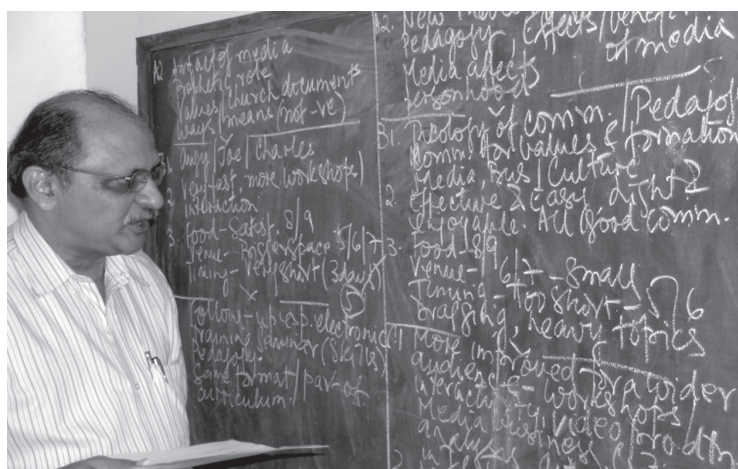 A2. Impact of media
Prophetic role
Values/church documents
ways/means (not -ve)
Very fast, more workshops)
2 Interaction
3. Food - Satisf. 8/9
Venue - Bigger space 5/6/7
Timing - Very short (3 days)
Follow-up esp. electronic
Training Seminar (Skills)
Pedagogy.
Same format/part of
curriculum.
A2. New
Pedagogy, Effects/benefit
of media
Media affects
personhood
B1. Theology of comm./Pedagogy
Comm. for values & formation
Media, Bus/Culture
2. Effective & easy, light &
enjoyable. All good comm.
3. Food - 8/9
Venue - 6/7 - Small
Timing - Too short - 5/6
Dragging, heavy topics
More improved for a wider
audience - workshops/
Interactivity, video prodn
Media business
analysis